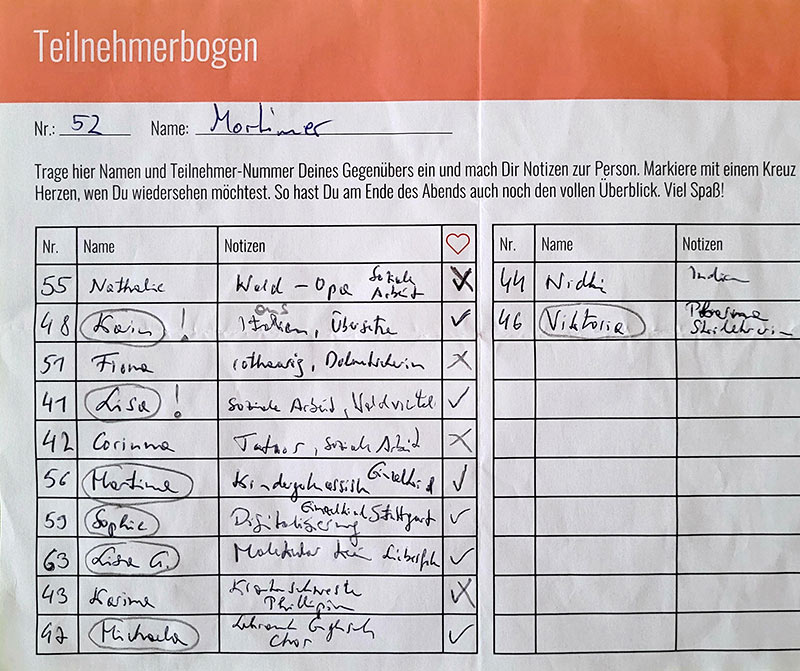 Teilnehmerbogen
Nr.: 52 Name: Mortimer
Trage hier Namen und Teilnehmer-Nummer Deines Gegenübers ein und mach Dir Notizen zur Person. Markiere mit einem Kreuz
Herzen, wen Du wiedersehen möchtest. So hast Du am Ende des Abends auch noch den vollen Überblick. Viel Spaß!
Nr. Name Notizen ♡ Nr. Name Notizen
55 Nathalie Wald - Opa Soziale Arbeit 44 Nidhi Indien
48 Karin! Italien, 46 Viktoria Pharma
51 Fiona rothaarig, Dolmetscherin
41 Lisa! Soziale Arbeit, Waldviertel
42 Corinna Tattoos, Soziale Arbeit
56 Martina Einzelkind
59 Sophie Digitalisierung Einzelkind Stuttgart
63 Lisa G.
43 Karina Krankenschwester
47 Michaela Lehramt Englisch
Chor